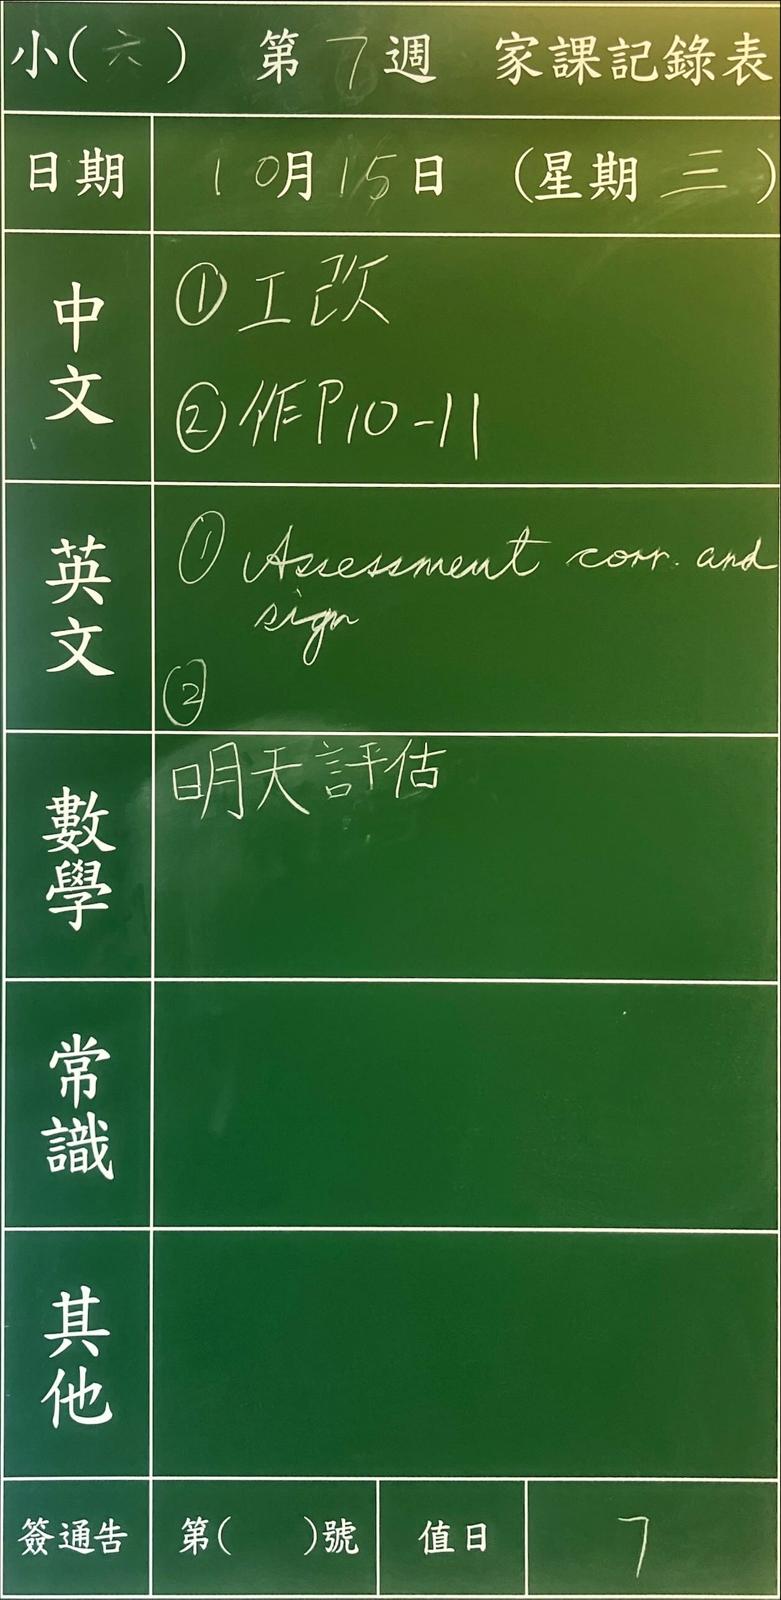 小(六) 第7週 家課記錄表
日期 10月15日 (星期三)
中文
①工改
②作P10-11
英文
① Assessment corr. and
sign
②
數學
明天評估
常識
其他
簽通告 第( )號 值日 7